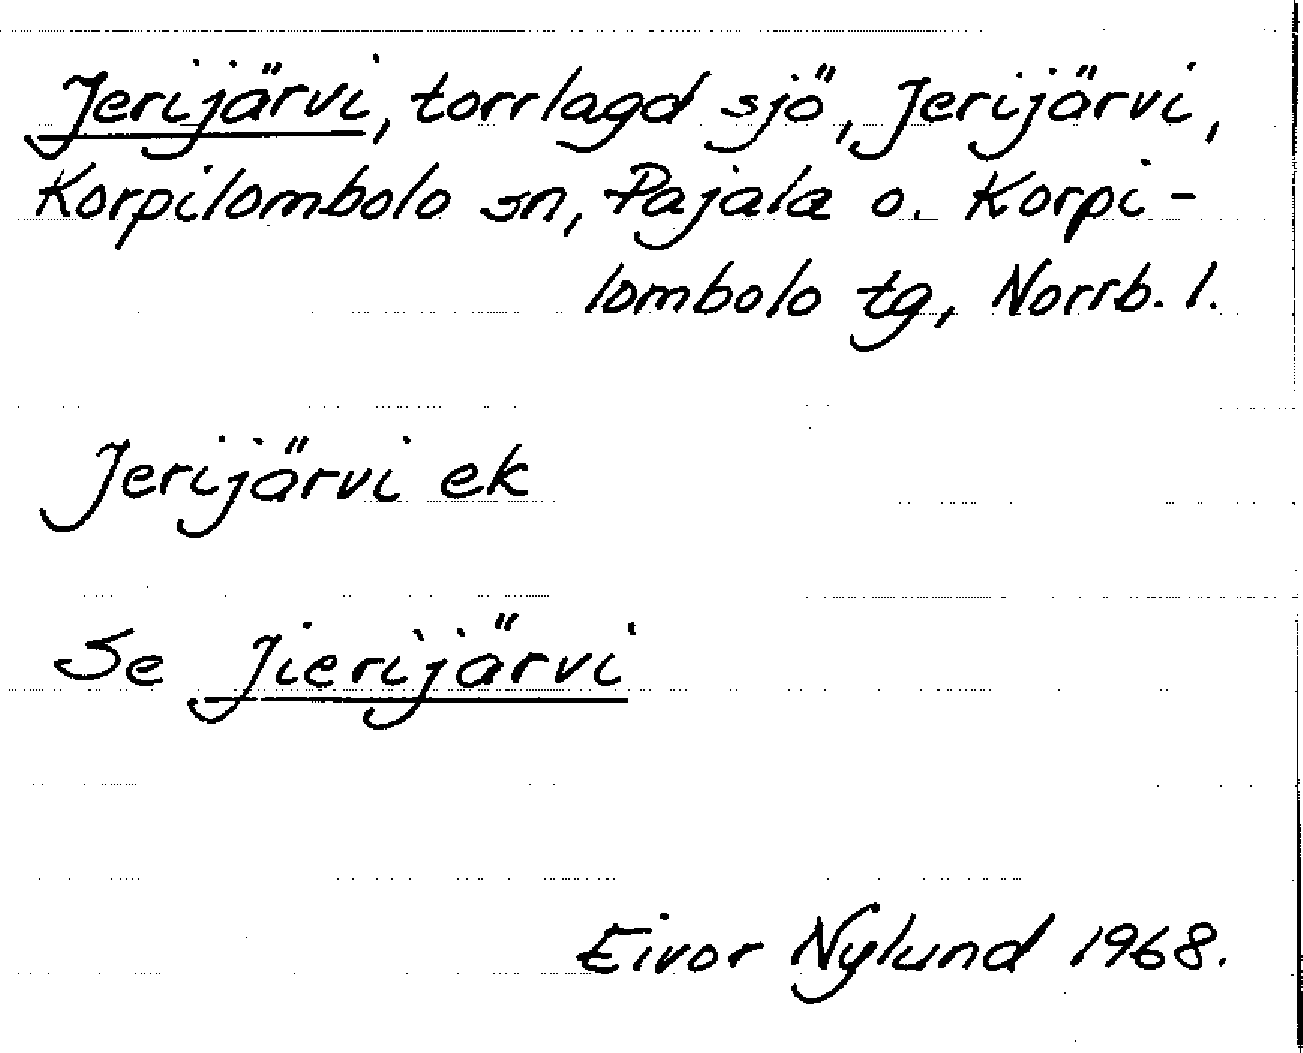 Jerijärvi, torrlagd sjö, Jerijärvi,
Korpilombolo sn, Pajala o. Korpi-
lombolo tg, Norrb. l.
Jerijärvi ek
Se Jierijärvi
Eivor Nylund 1968.